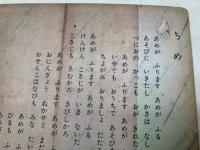 あめ
あめが ふります あめが ふる
あそびに いきたし かさは なし
べにおの かっこも おが きれた
あめが ふります あめが ふる
いやでも おうちで あそびましょう
ちよがみ おりましょう たたみましょう
あめが ふります あめが ふる
けんけん こきじが いま ないた
こきじも さむかろ さびしかろ
あめが ふります あめが ふる
おにんぎょう ねかせど
おせんこはなびも みな
あめが
ひるも ふる